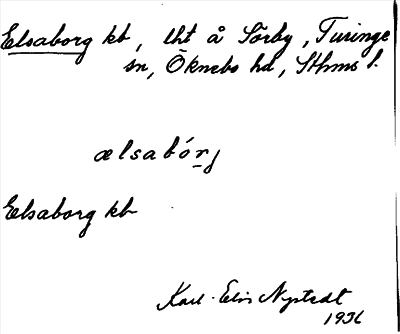 Elsaborg kb, lht å Sörby, Turinge
sn, Öknebo hd, Sthms l.
ælsabórj
Elsaborg kb
Karl-Elis Nystedt
1936